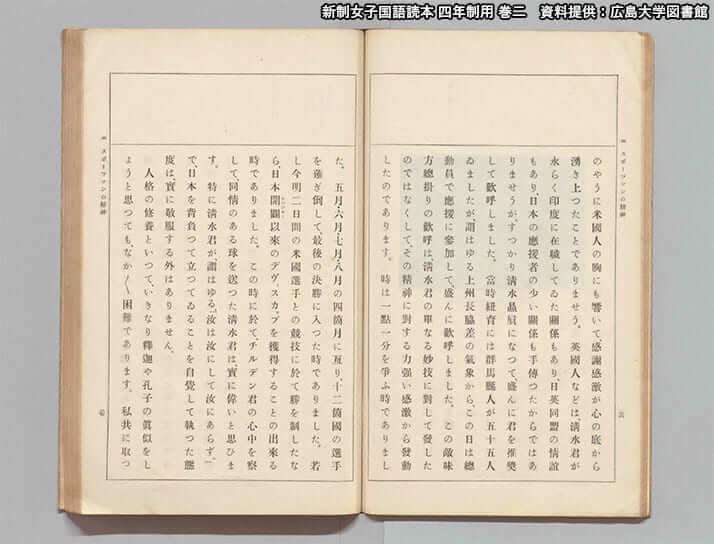 新制女子国語読本 四年制用 巻二　資料提供：広島大学図書館
スポーツマンの精神
のやうに米國人の胸にも響いて感謝感激が心の底から
湧き上つたことでありませう。英國人などは、清水君が
永らく印度に在職してゐた關係もあり、日英同盟の情誼
もあり、日本の應援者の少い關係も手傳つたからではあ
りませうが、すつかり清水贔屓になつて盛んに君を推奬
して歡呼しました。當時紐育には群馬縣人が五十五人
ゐましたが、謂はゆる上州長脇差の氣象から、この日は總
動員で應援に參加して、盛んに歡呼しました。この敵味
方總掛りの歡呼は、清水君の單なる妙技に對して發した
のではなくして、その精神に對する力強い感激から發動
したのであります。時は一點一分を爭ふ時でありまし
た。五月・六月・七月・八月の四箇月に亙り、十二箇國の選手
を薙ぎ倒して、最後の決勝に入つた時でありました。若
し今明二日間の米國選手との競技に於て勝を制したな
ら、日本開闢以來のデヴィスカップを獲得することの出來る
時でありました。この時に於て、チルデン君の心中を察
して、同情のある球を送つた清水君は、實に偉いと思ひま
す。特に清水君が、謂はゆる「汝は汝にして汝にあらず。」
で、日本を背負つて立つてゐることを自覺して執つた態
度は、實に敬服する外はありません。
人格の修養といつて、いきなり釋迦や孔子の眞似をし
ようと思つても、なか〳〵困難であります。私共に取つ
スポーツマンの精神